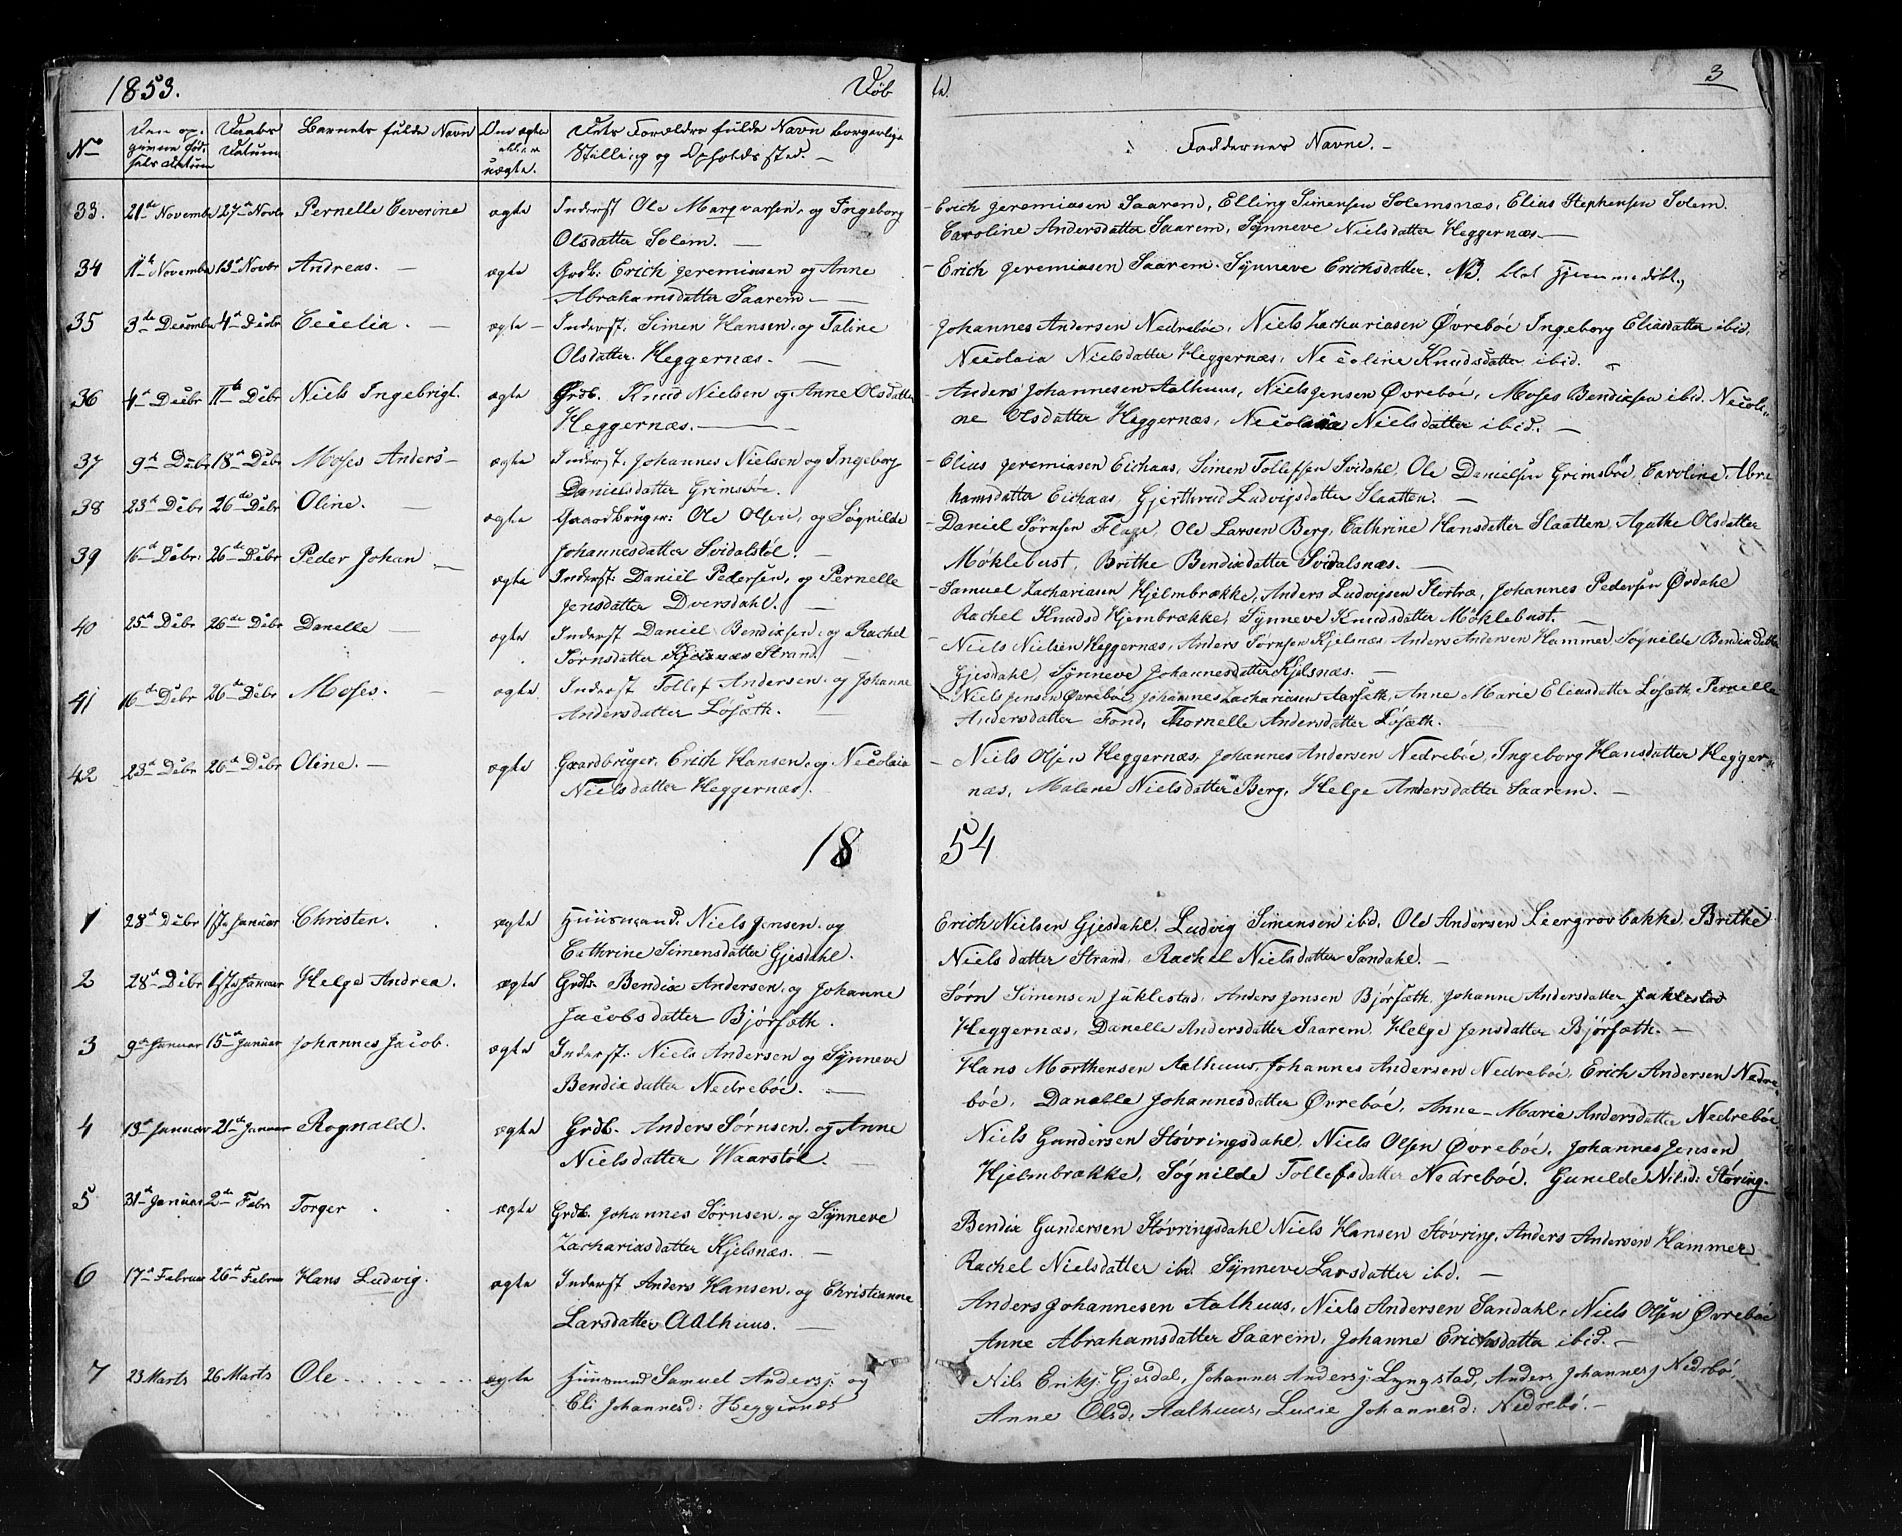 1853.
Døb
te.
3
No
Den op-
givne Fød-
sels Datum
Daabs
Datum
Barnets fulde Navn
Om ægte
eller
uægte.
Dets Forældres fulde Navn borgerlige
Stilling og Opholdssted. —
Faddernes Navne. —
33. 21de Novembr 27de Novbr Pernelle Severine ægte Inderst Ole Marqvarsen, og Ingeborg
Olsdatter Solem. —
Erich Jeremiasen Saarem, Elling Simensen Solemsnæs, Elias Stephensen Solem.
Caroline Andersdatter Saarem, Synneve Nielsdatter Heggernæs —
34 11te Novembr 13de Novbr Andreas. — ægte Grdb. Erich Jeremiasen og Anne
Abrahamsdatter Saarem —
Erich Jeremiasen Saarem. Synneve Erichsdatter. NB. blot hjemmedøbt.,
35 3de Decembr 4de Decbr Cecelia. — ægte — Inderst. Simen Hansen, og Taline
Olsdatter. Heggernæs. —
Johannes Andersen Nedrebøe, Niels Zachariasen Øvrebøe Ingeborg Eliasdatter ibid.
Nicolaia Nielsdatter Heggernæs, Nicoline Knudsdatter ibid.
36 4de Decbr 11te Decbr Niels Ingebrigt. ægte Grdb. Knud Nielsen og Anne Olsdatter
Heggernæs. —
Anders Johannesen Aalhuus, Niels Jensen Øvrebøe, Moses Bendixsen ibid. Nicoli-
ne Olsdatter Heggernæs, Nicolaia Nielsdatter ibid. —
37 9de Decbr 18de Decbr Moses Anders — ægte Inderst. Johannes Nielsen og Ingeborg
Danielsdatter Grimsbøe.
Elias Jeremiasen Eichaas, Simen Tollefsen Svidahl, Ole Danielsen Grimsbøe, Caroline Abra-
hamsdatter Eichaas, Gjerthrud Ludvigsdatter Slaatten. —
38 23de Decbr 26de Decbr Oline. — ægte Gaardbruger: Ole Olsen, og Søgnilde
Johannesdatter Svidalstøl. —
Daniel Sørnsen Flage, Ole Larsen Berg, Cathrine Hansdatter Slaatten, Agathe Olsdatter
Møklebust, Brithe Bendixdatter Svidalsnæs. —
39 16de Decbr. 26de Decbr Peder Johan — ægte Inderst: Daniel Pedersen, og Pernelle
Jensdatter Dversdahl. —
Samuel Zachariasen Hjelmbrække, Anders Ludvigsen Stortræ, Johannes Pedersen Øvdahl
Rachel Knudsd Hjembrække, Synneve Knudsdatter Møklebust. —
40 25de Decbr 26de Decbr Danelle — ægte Inderst Daniel Bendixsen, og Rachel
Sørnsdatter Kjelsnæs Strand. —
Niels Nielsen Heggernæs, Anders Sørnsen Kjelsnæs Anders Andersen Hammer Søgnilde Bendixdatter
Gjesdahl, Synneve Johannesdatter Kjelsnæs. —
41 16de Decbr 26de Decbr Moses. — ægte Inderst Tollef Andersen, og Johanne
Andersdatter Løsæth. —
Niels Jensen Øvrebøe, Johannes Zachariasen Aarsæth, Anne Marie Eliasdatter Løsæth Pernelle
Andersdatter Fond, Thornelle Andersdatter Løsæth.
42 23de Decbr 26de Decbr Oline. — ægte Gaardbruger, Erich Hansen, og Nicolaia
Nielsdatter Heggernæs.
Niels Olsen Heggernæs, Johannes Andersen Nedrebøe, Ingeborg Hansdatter Hegger-
næs, Malene Nielsdatter Berg, Helge Andersdatter Saarem. —
18 54
1 28de Decbr 1ste Januar Christen. ægte Huusmand. Niels Jensen, og
Cathrine Simensdatter Gjesdahl.
Erich Nielsen Gjesdahl. Ludvig Simensen ibd. Ole Andersen Leergrovbakke, Brithe
Nielsdatter Strand, Rachel Nielsdatter Sandahl. —
2 28de Decbr 1ste Januar Helge Andrea. ægte Grdb. Bendix Andersen, og Johanne
Jacobsdatter Bjørsæth.
Sørn Simensen Jøklestad, Anders Jensen Bjørsæth, Johanne Andersdatter Jøklestad
Heggernæs, Danelle Andersdatter Saarem, Helge Jensdatter Bjørsæth. —
3 9de Januar 15de Januar Johannes Jacob. ægte Inderst: Niels Andersen og Synneve
Bendixdatter Nedrebøe. —
Hans Morthensen Aalhuus, Johannes Andersen Nedrebøe, Erich Andersen Nedre-
bøe, Danelle Johannesdatter Øvrebøe, Anne-Marie Andersdatter Nedrebøe
4 13de Januar 21de Januar Rognald. ægte Grdb. Anders Sørnsen, og Anne
Nielsdatter Waarstøl. —
Niels Gundersen Støvringsdahl, Niels Olsen Øvrebøe, Johannes Jensen
Hjelmbrække, Søgnilde Tollefsdatter Nedrebøe. Gunilde Nilsd: Støring-
5 31de Januar 2de Febr Torger ægte Grdb. Johannes Sørnsen, og Synneve
Zachariasdatter Kjelsnæs. —
Bendix Gundersen Støvringsdahl Niels Hansen Støvring, Anders Andersen Hammer
Rachel Nielsdatter ibd. Synneve Larsdatter ibd. —
6 17de Februar 26de Februar Hans Ludvig. ægte Inderst Anders Hansen, og Christianne
Larsdatter Aalhuus. —
Anders Johannesen Aalhuus, Niels Andersen Sandahl, Niels Olsen Øvrebøe
Anne Abrahamsdatter Saarem, Johanne Erichsdatter ibid. —
7 23 Marts 26 Marts Ole . . . . . . . ægte Huusmand Samuel Andersj: og
Eli Johannesd: Heggernæs
Nils Eriksj: Gjesdal, Johannes Andersj: Lyngstad, Anders Johannesj Nedrebø,
Anne Olsd, Aalhuus, Lucie Johannesd: Nedrebø. —